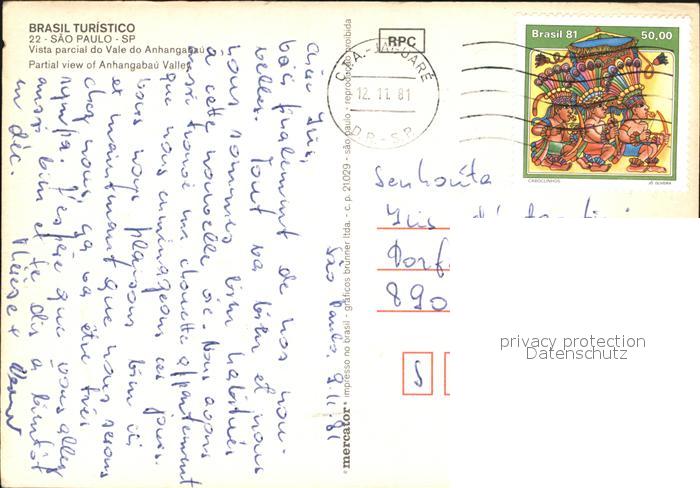 BRASIL TURÍSTICO
22 - SÃO PAULO - SP
Vista parcial do Vale do Anhangabaú
Partial view of Anhangabaú Valley
São Paulo, 9.11.81
voici finalement de nos nou-
velles. Tout va bien et nous
nous sommes bien habitués
à cette nouvelle vie. Nous avons
aussi trouvé un chouette appartement
que nous emménageons ces jours.
Nous nous plaisons bien ici
et maintenant que nous serons
chez nous, ça va être très
sympa. J'espère que vous allez
aussi bien et te dis à bientôt
en déc.
mercator® impresso no brasil - gráficos brunner ltda. - c.p. 21029 - são paulo - reprodução proibida
RPC
C.T.A. - JAGUARÉ
12.11.81
DR-SP
Brasil 81 50,00
CABOCLINHOS
Senhorita
890
5
privacy protection
Datenschutz